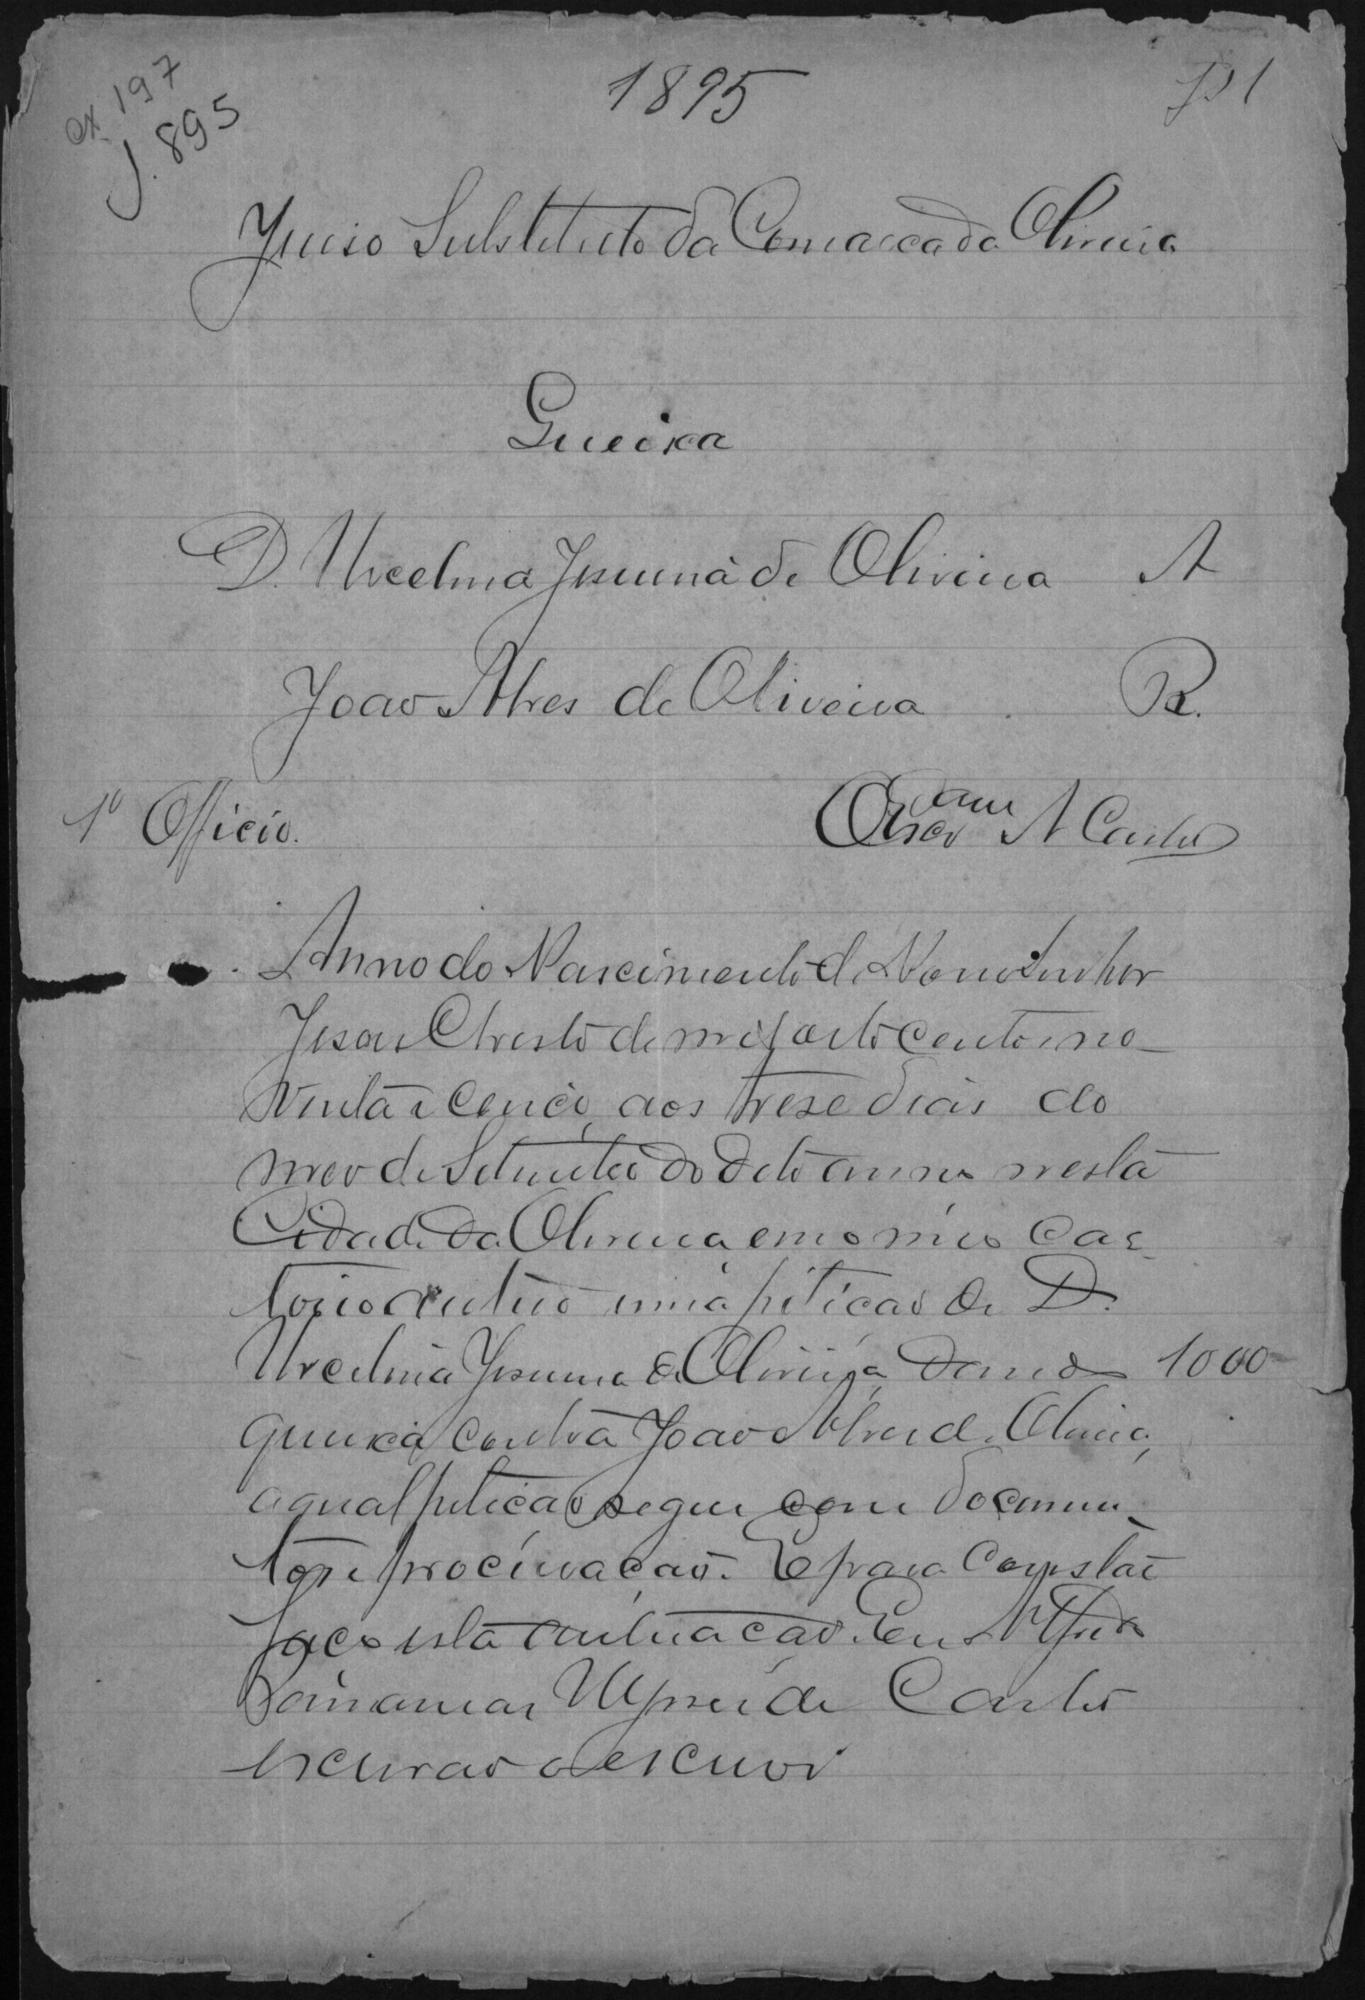 1895
cx 197
J. 895
Juiso Substituto da Comarca da Oliveira
Queixa
D. Urcelina Jesuina de Oliveira A
Joao Alves de Oliveira R.
1º Officio. A Castro
Anno do Nascimento de Nosso Senhor
Jesus Christo de mil oito centos e no-
venta e cinco, aos trese dias do
mes de Setembro do dito anno nesta
Cidade da Oliveira em o meo car-
torio autuo uma peticao de D.
Urcelina Jesuina de Oliveira dando 1000
queixa contra Joao Alves de Oliveira,
a qual peticao segue com documen-
tos e procuracao. E para constar
faco esta autuacao. Eu
de Castro
escrivao o escrevi